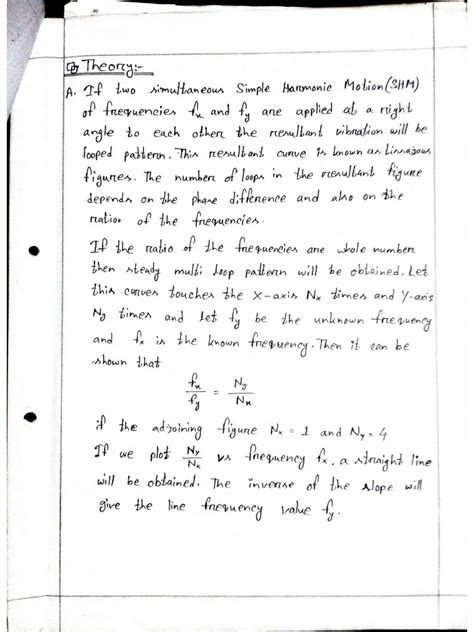 Theory:-
A. If two simultaneous Simple Harmonic Motion (SHM)
of frequencies fx and fy are applied at a right
angle to each other the resultant vibration will be
looped pattern. This resultant curve is known as Lissajous
figures. The number of loops in the resultant figure
depends on the phase difference and also on the
ratio of the frequencies.
If the ratio of the frequencies are whole number
then steady multi loop pattern will be obtained. Let
this curves touches the X-axis Nx times and Y-axis
Ny times and let fy be the unknown frequency
and fx is the known frequency. Then it can be
shown that
fx/fy = Ny/Nx
if the adjoining figure Nx = 1 and Ny = 4
If we plot Ny/Nx vs frequency fx, a straight line
will be obtained. The inverse of the slope will
give the line frequency value fy.